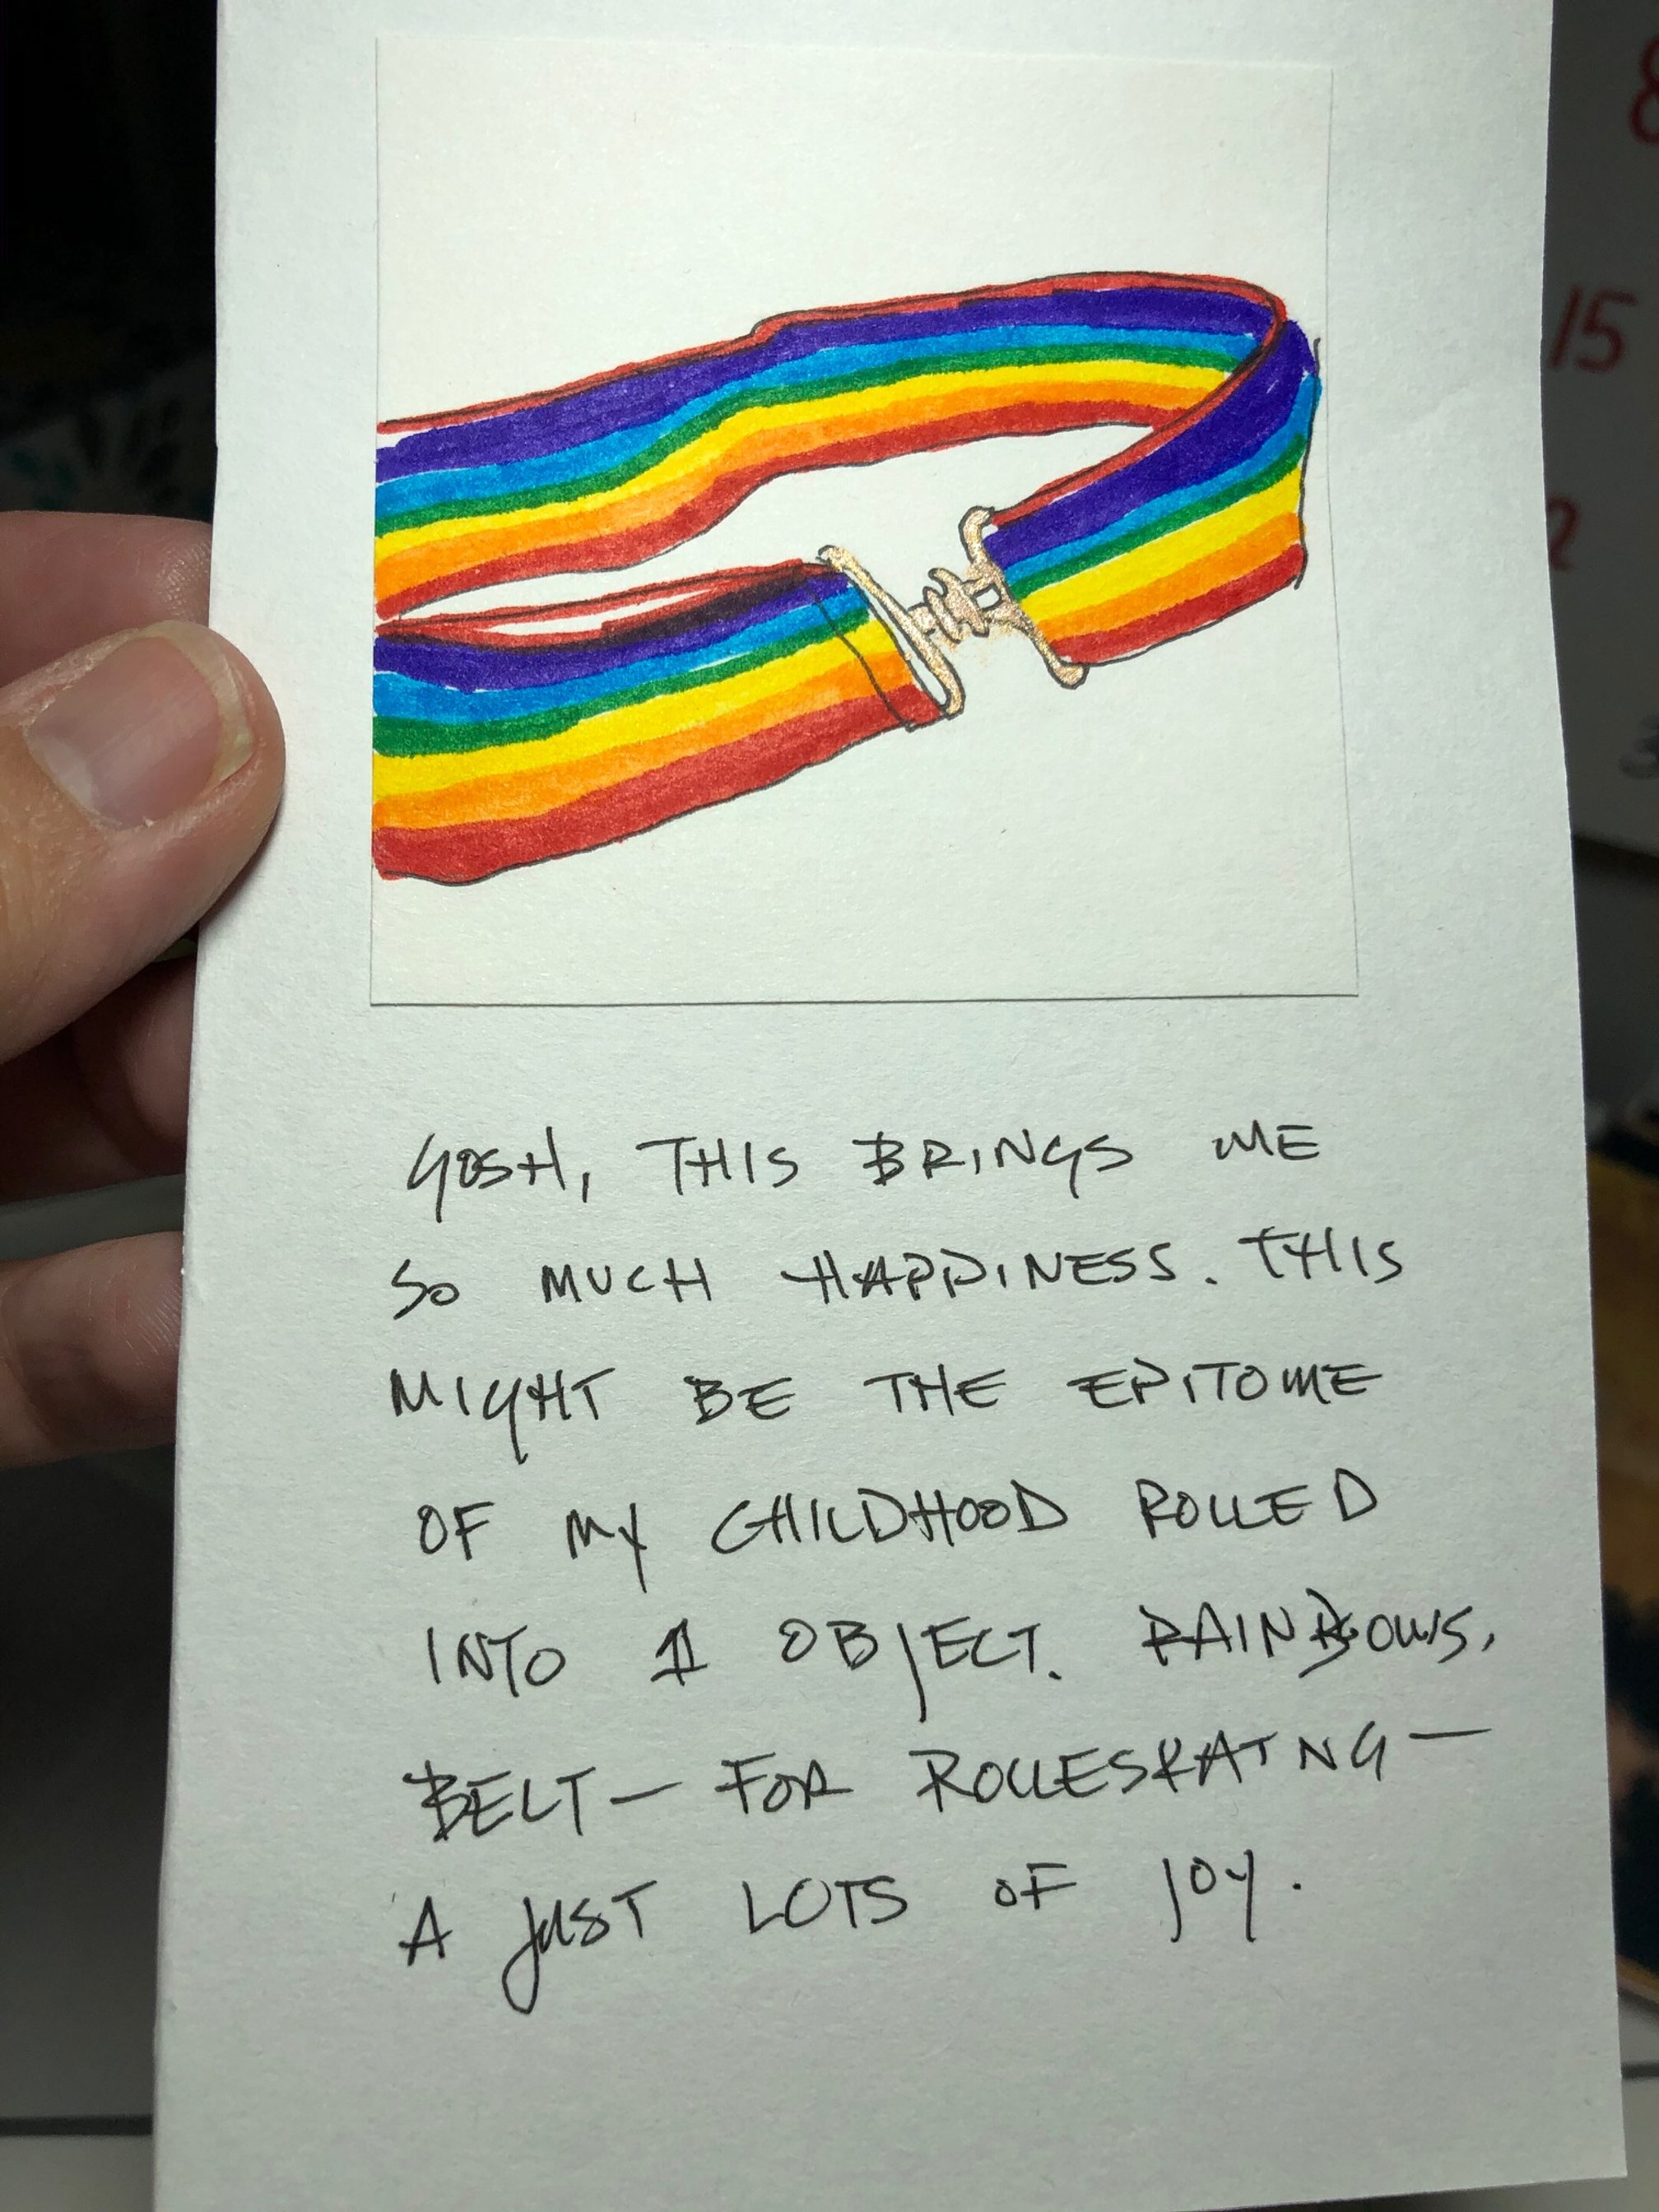 GOSH, THIS BRINGS ME
SO MUCH HAPPINESS. THIS
MIGHT BE THE EPITOME
OF MY CHILDHOOD ROLLED
INTO 1 OBJECT. RAINBOWS,
BELT — FOR ROLLESKATING —
A JUST LOTS OF JOY.
8
15
2
3